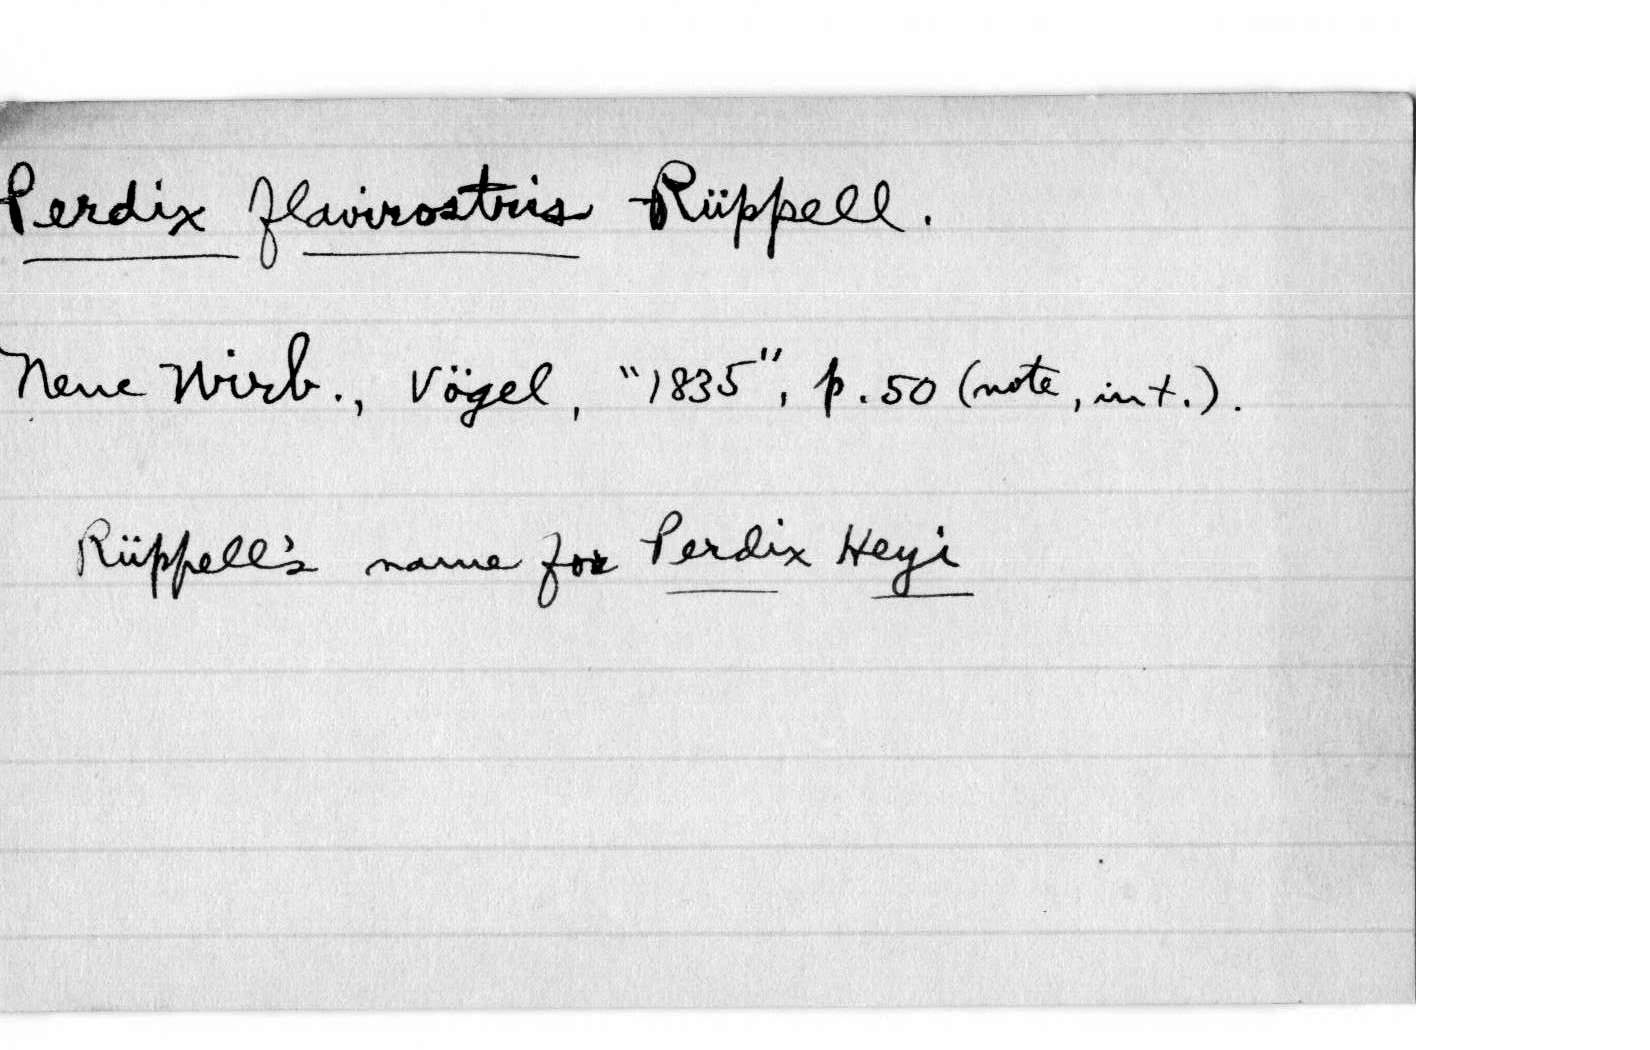 Perdix flavirostris Rüppell.
Neue Wirb., Vögel, "1835", p. 50 (note, in t.).
Rüppell's name for Perdix Heyi